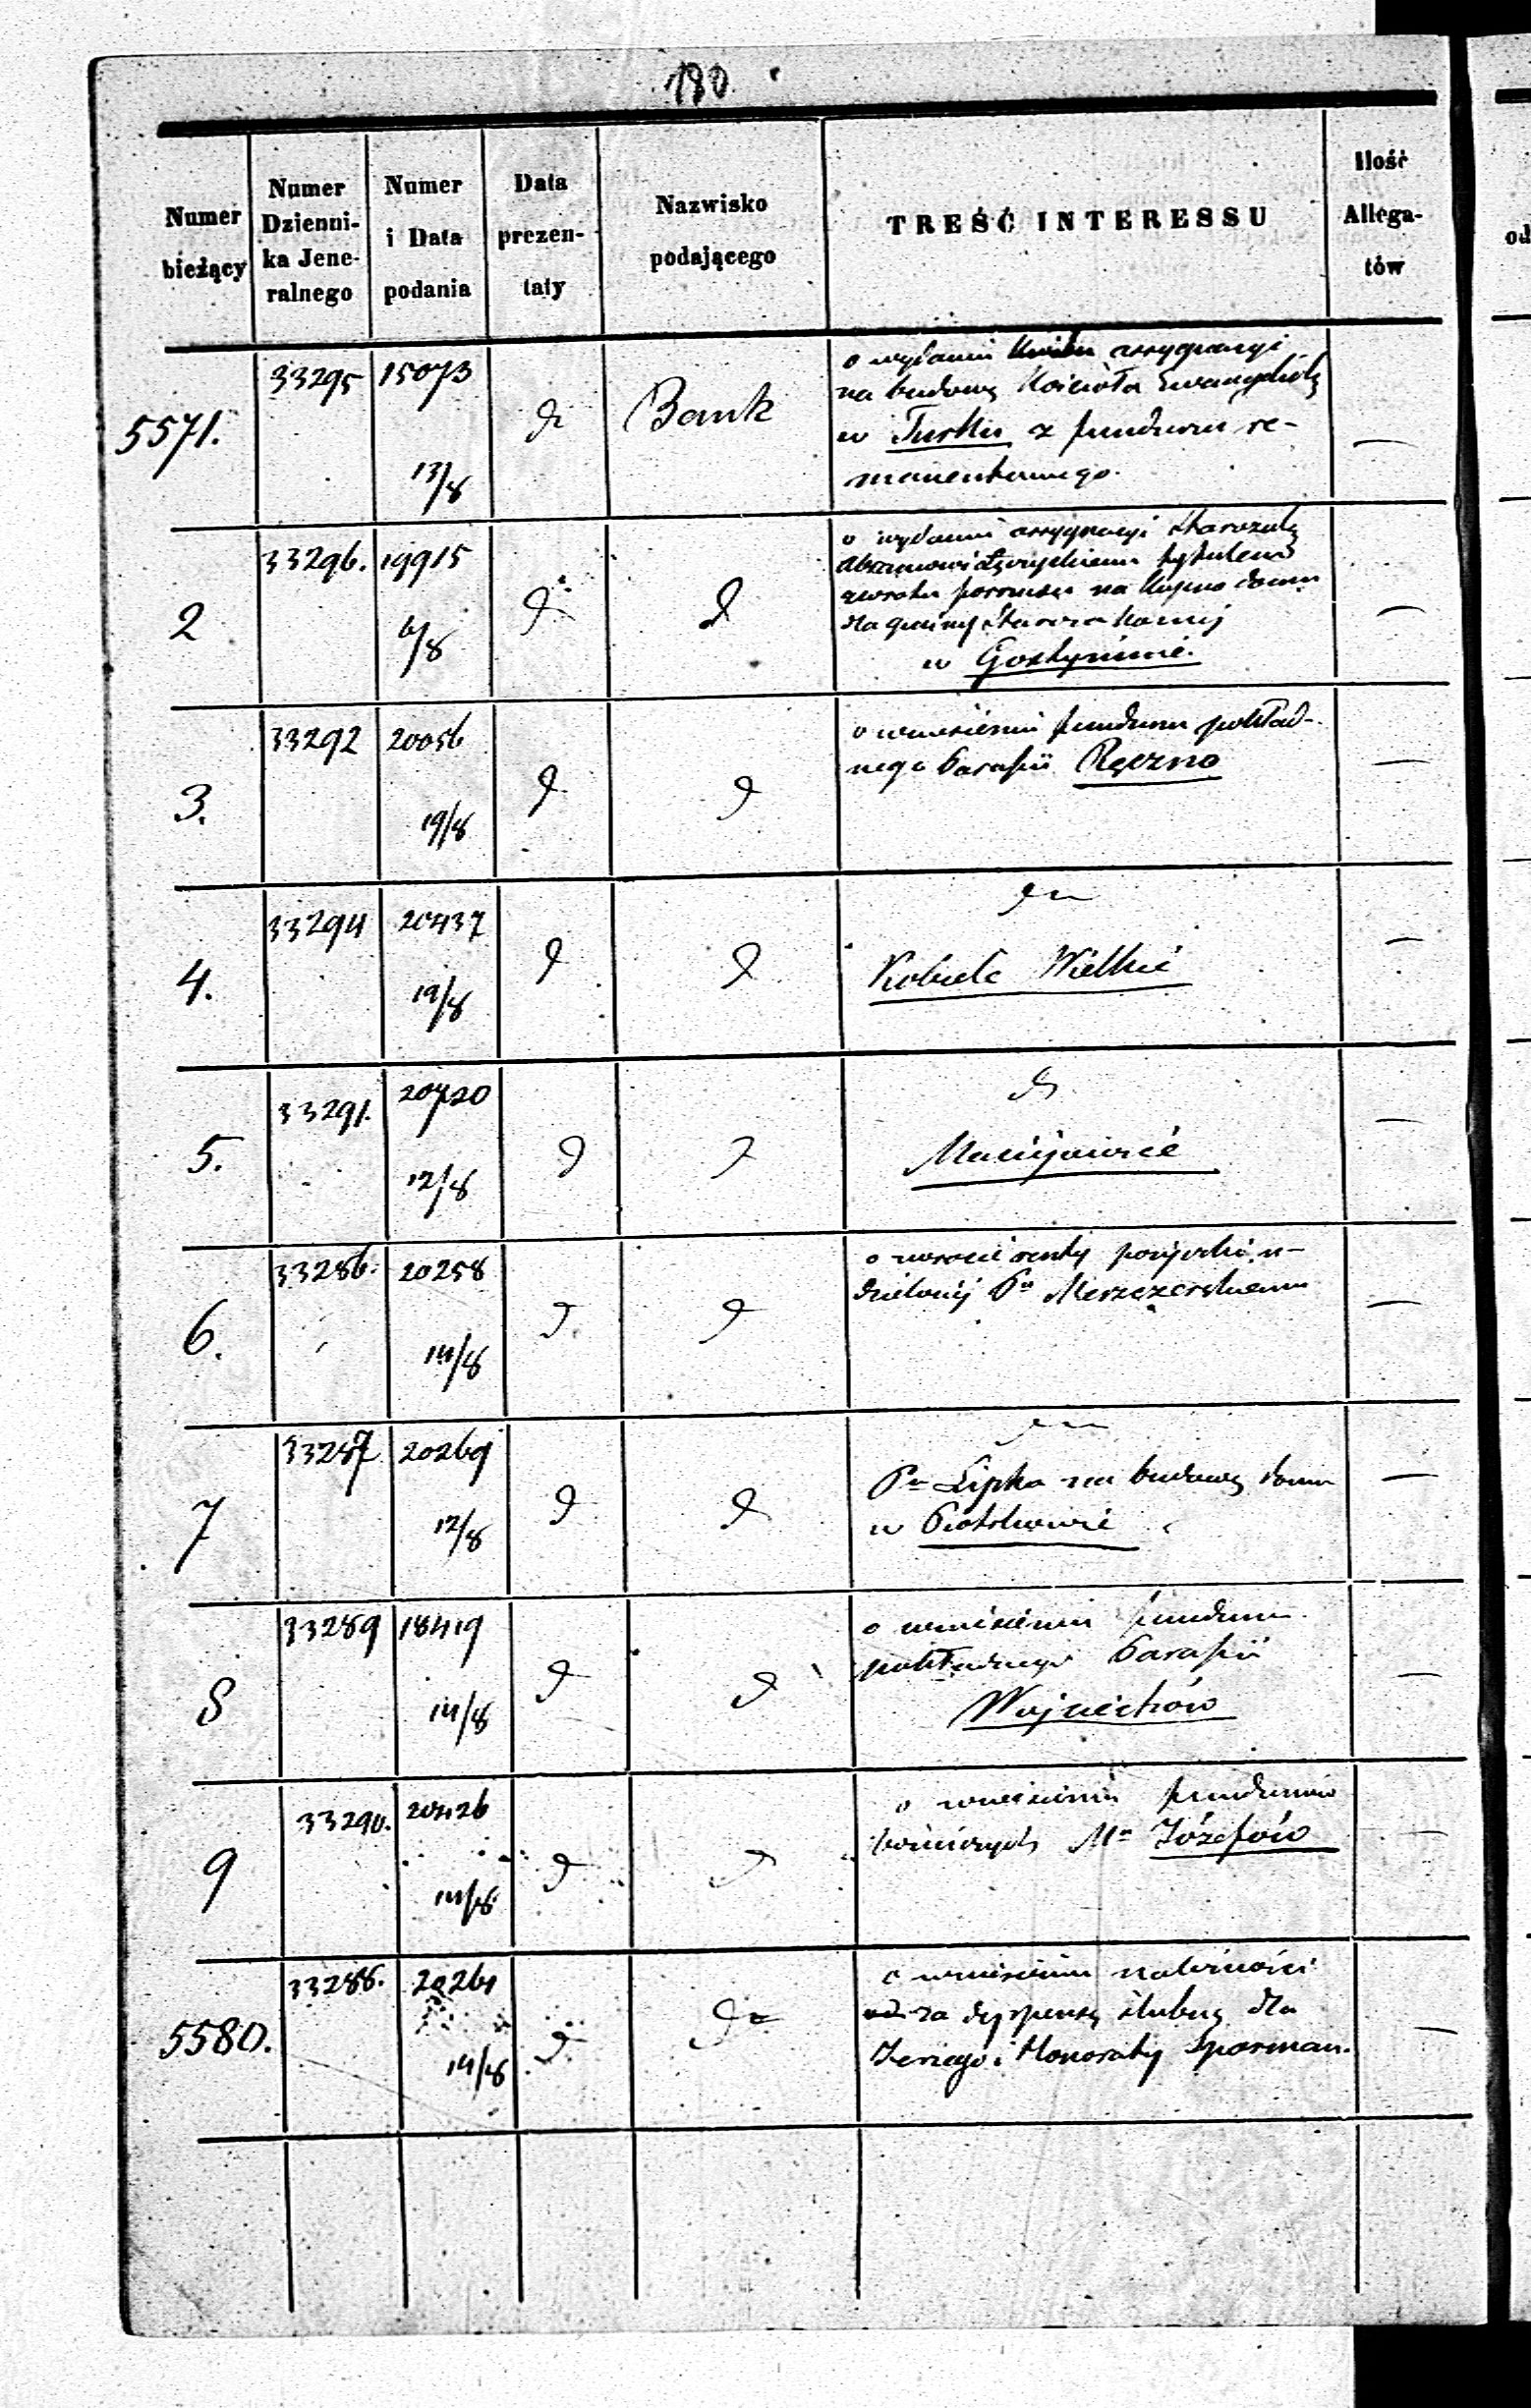 180
Numer bieżący
Numer Dzienni-
ka Jene-
ralnego
Numer i Data podania
Data prezen-
taty
Nazwisko podającego
TREŚĆ INTERESSU
Ilość Allega-
tów
5571. 33295 15073 13/8 Bank
o wydanie assygnacyi
na budowę Kościoła
w Turku z funduszu re-
manentowego.
2 33296. 19915 6/8 d
o wydanie assygnacyi
tytułem
na kupno domu
dla gminy
w Gostyninie.
3. 33292 20056 19/8 d d
o wniesieniu funduszu pokład-
nego Parafii Ręczno
4. 33294 20437 19/8 d d
Kobiele Wielkie
5. 33291. 20720 12/8 d d
Maciejowice
6. 33286. 20258 14/8 d d
o zwrocie renty pożyczki u-
dzielonej Pu
7 33287 20269 12/8 d d
Pu Lipka na budowę domu
w Piotrkowie
8 33289 18419 14/8 d d
o wniesieniu funduszu
pokładnego Parafii
Wojciechów
9 33290. 20426 14/8 d d
o wniesieniu funduszów
Ma Józefów
5580. 33288. 20261 14/8 d do
o wniesieniu należności
za dyspensę ślubną dla
Jerzego i Honoraty Sparman.